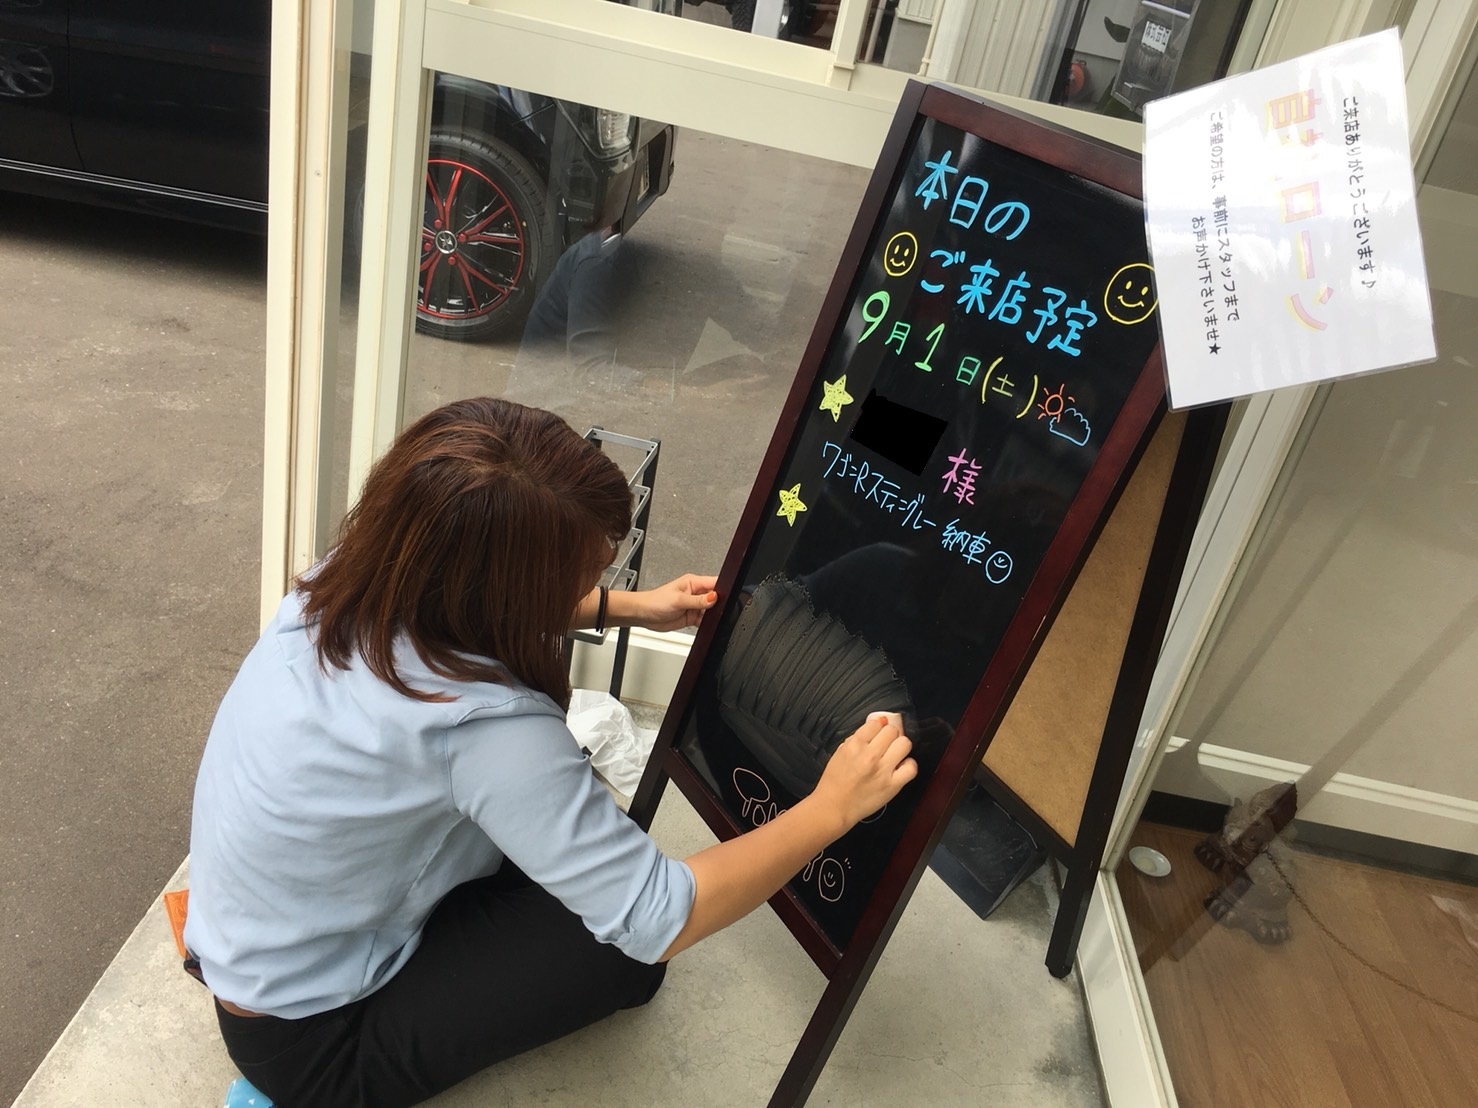 本日の
ご来店予定
9月1日(土)
様
ワゴンRスティングレー 納車
ご来店ありがとうございます♪
ローン
ご希望の方は、事前にスタッフまで
お声かけ下さいませ★
株式会社